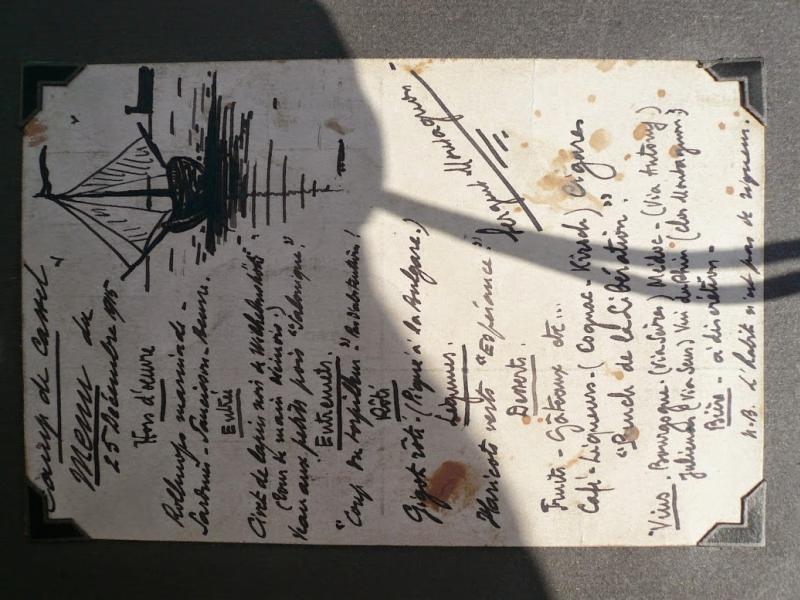 Camp de Cassel
Menu du
25 Décembre 1915
Hors d'œuvre
Rollmops marinés -
Sardines - Saucisson - Beurre.
Entrée
Civet de lapin noir de
(Pour la main
Veau aux petits pois "Salonique"
Entremets.
"Coup du torpilleur"
Rôti
Gigot rôti. (Piqué à la Bulgare.)
Légumes.
Haricots verts "Espérance".
Desserts.
Fruits - Gâteaux etc...
Café - Liqueurs - (Cognac - Kirsch) Cigares
"Punch de la Libération"
Vins. Bourgogne. (Via Suisse) Médoc - (Via Antony)
Julienas (Via Sens) Vin du Rhin (clos Montaquon)
Bière - à discrétion -
N.B. L'habit n'est pas de rigueur.